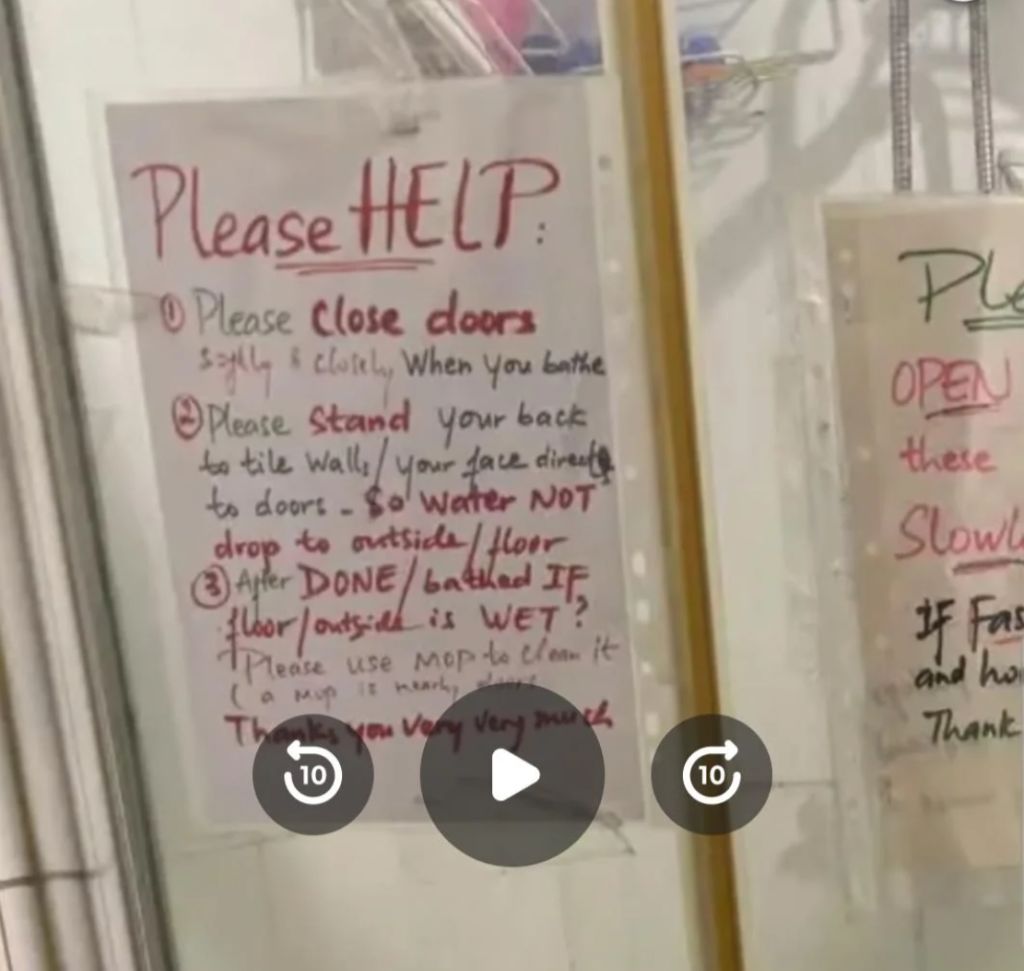 Please HELP:
① Please Close doors
& closely When you bathe
② Please Stand your back
to tile walls/your face direct
to doors - So water NOT
drop to outside/floor
③ After DONE/bathed IF
floor/outside is WET?
Please use MOP to clean it
(a mop is nearly
Thanks you very very much
OPEN
these
IF
and
Thank
10
10